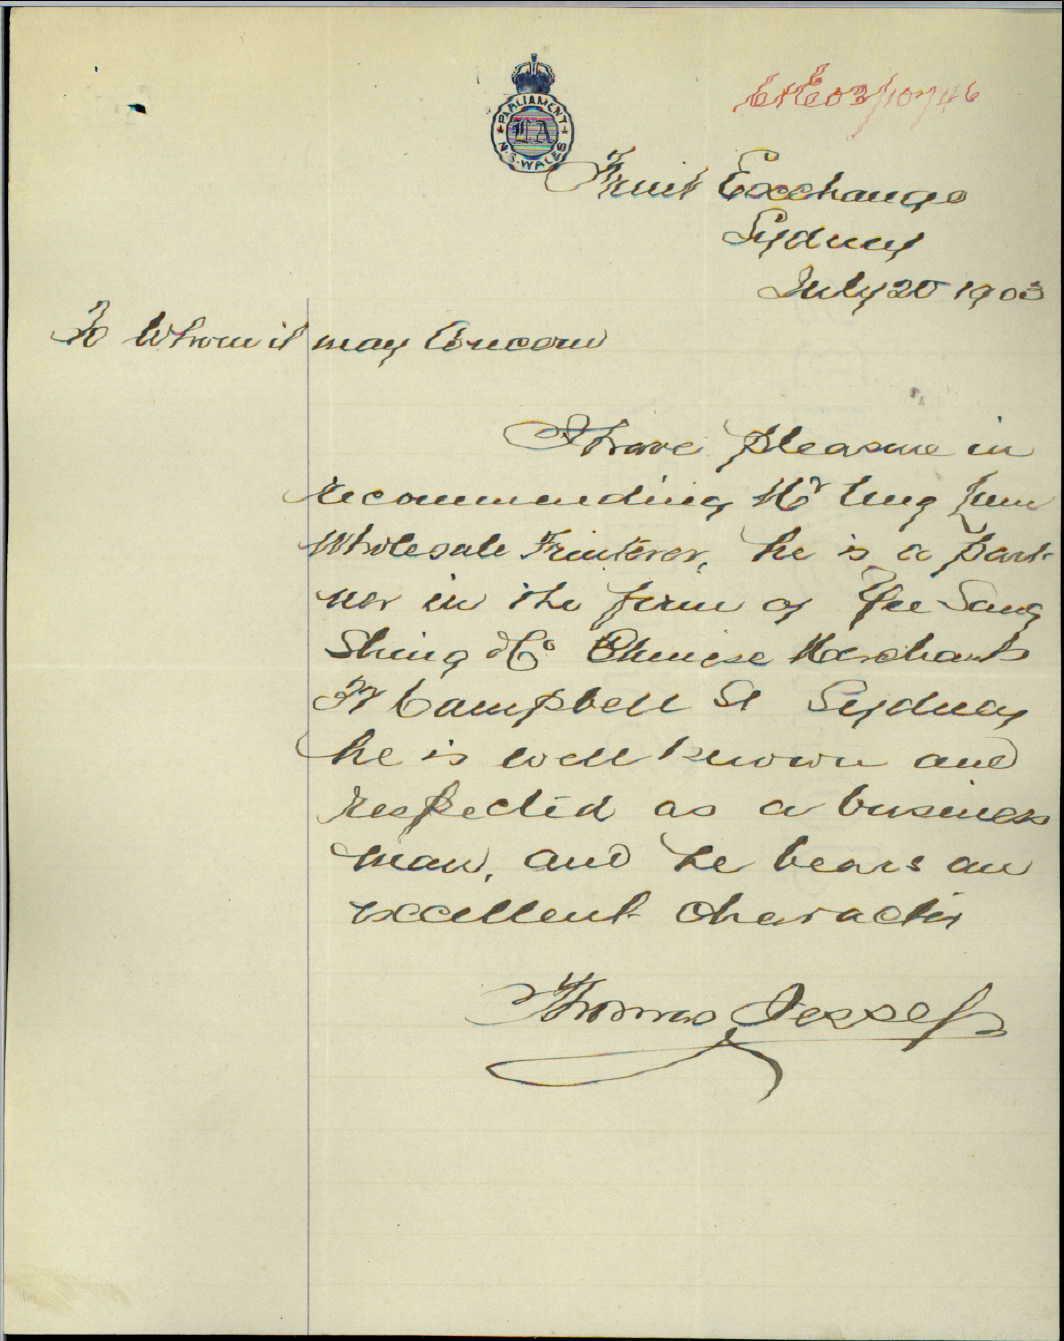 PARLIAMENT
LA
N.S.WALES
C&E03/10746
Fruit Exchange
Sydney
July 20 1903
To Whom it may Concern
I have pleasure in
recommending Mr Ung
Wholesale Fruiterer, he is a part-
ner in the firm of Yee Sang
Shing & Co Chinese Merchants
Campbell St Sydney
he is well known and
respected as a business
man, and he bears an
excellent character
Thomas Jessep